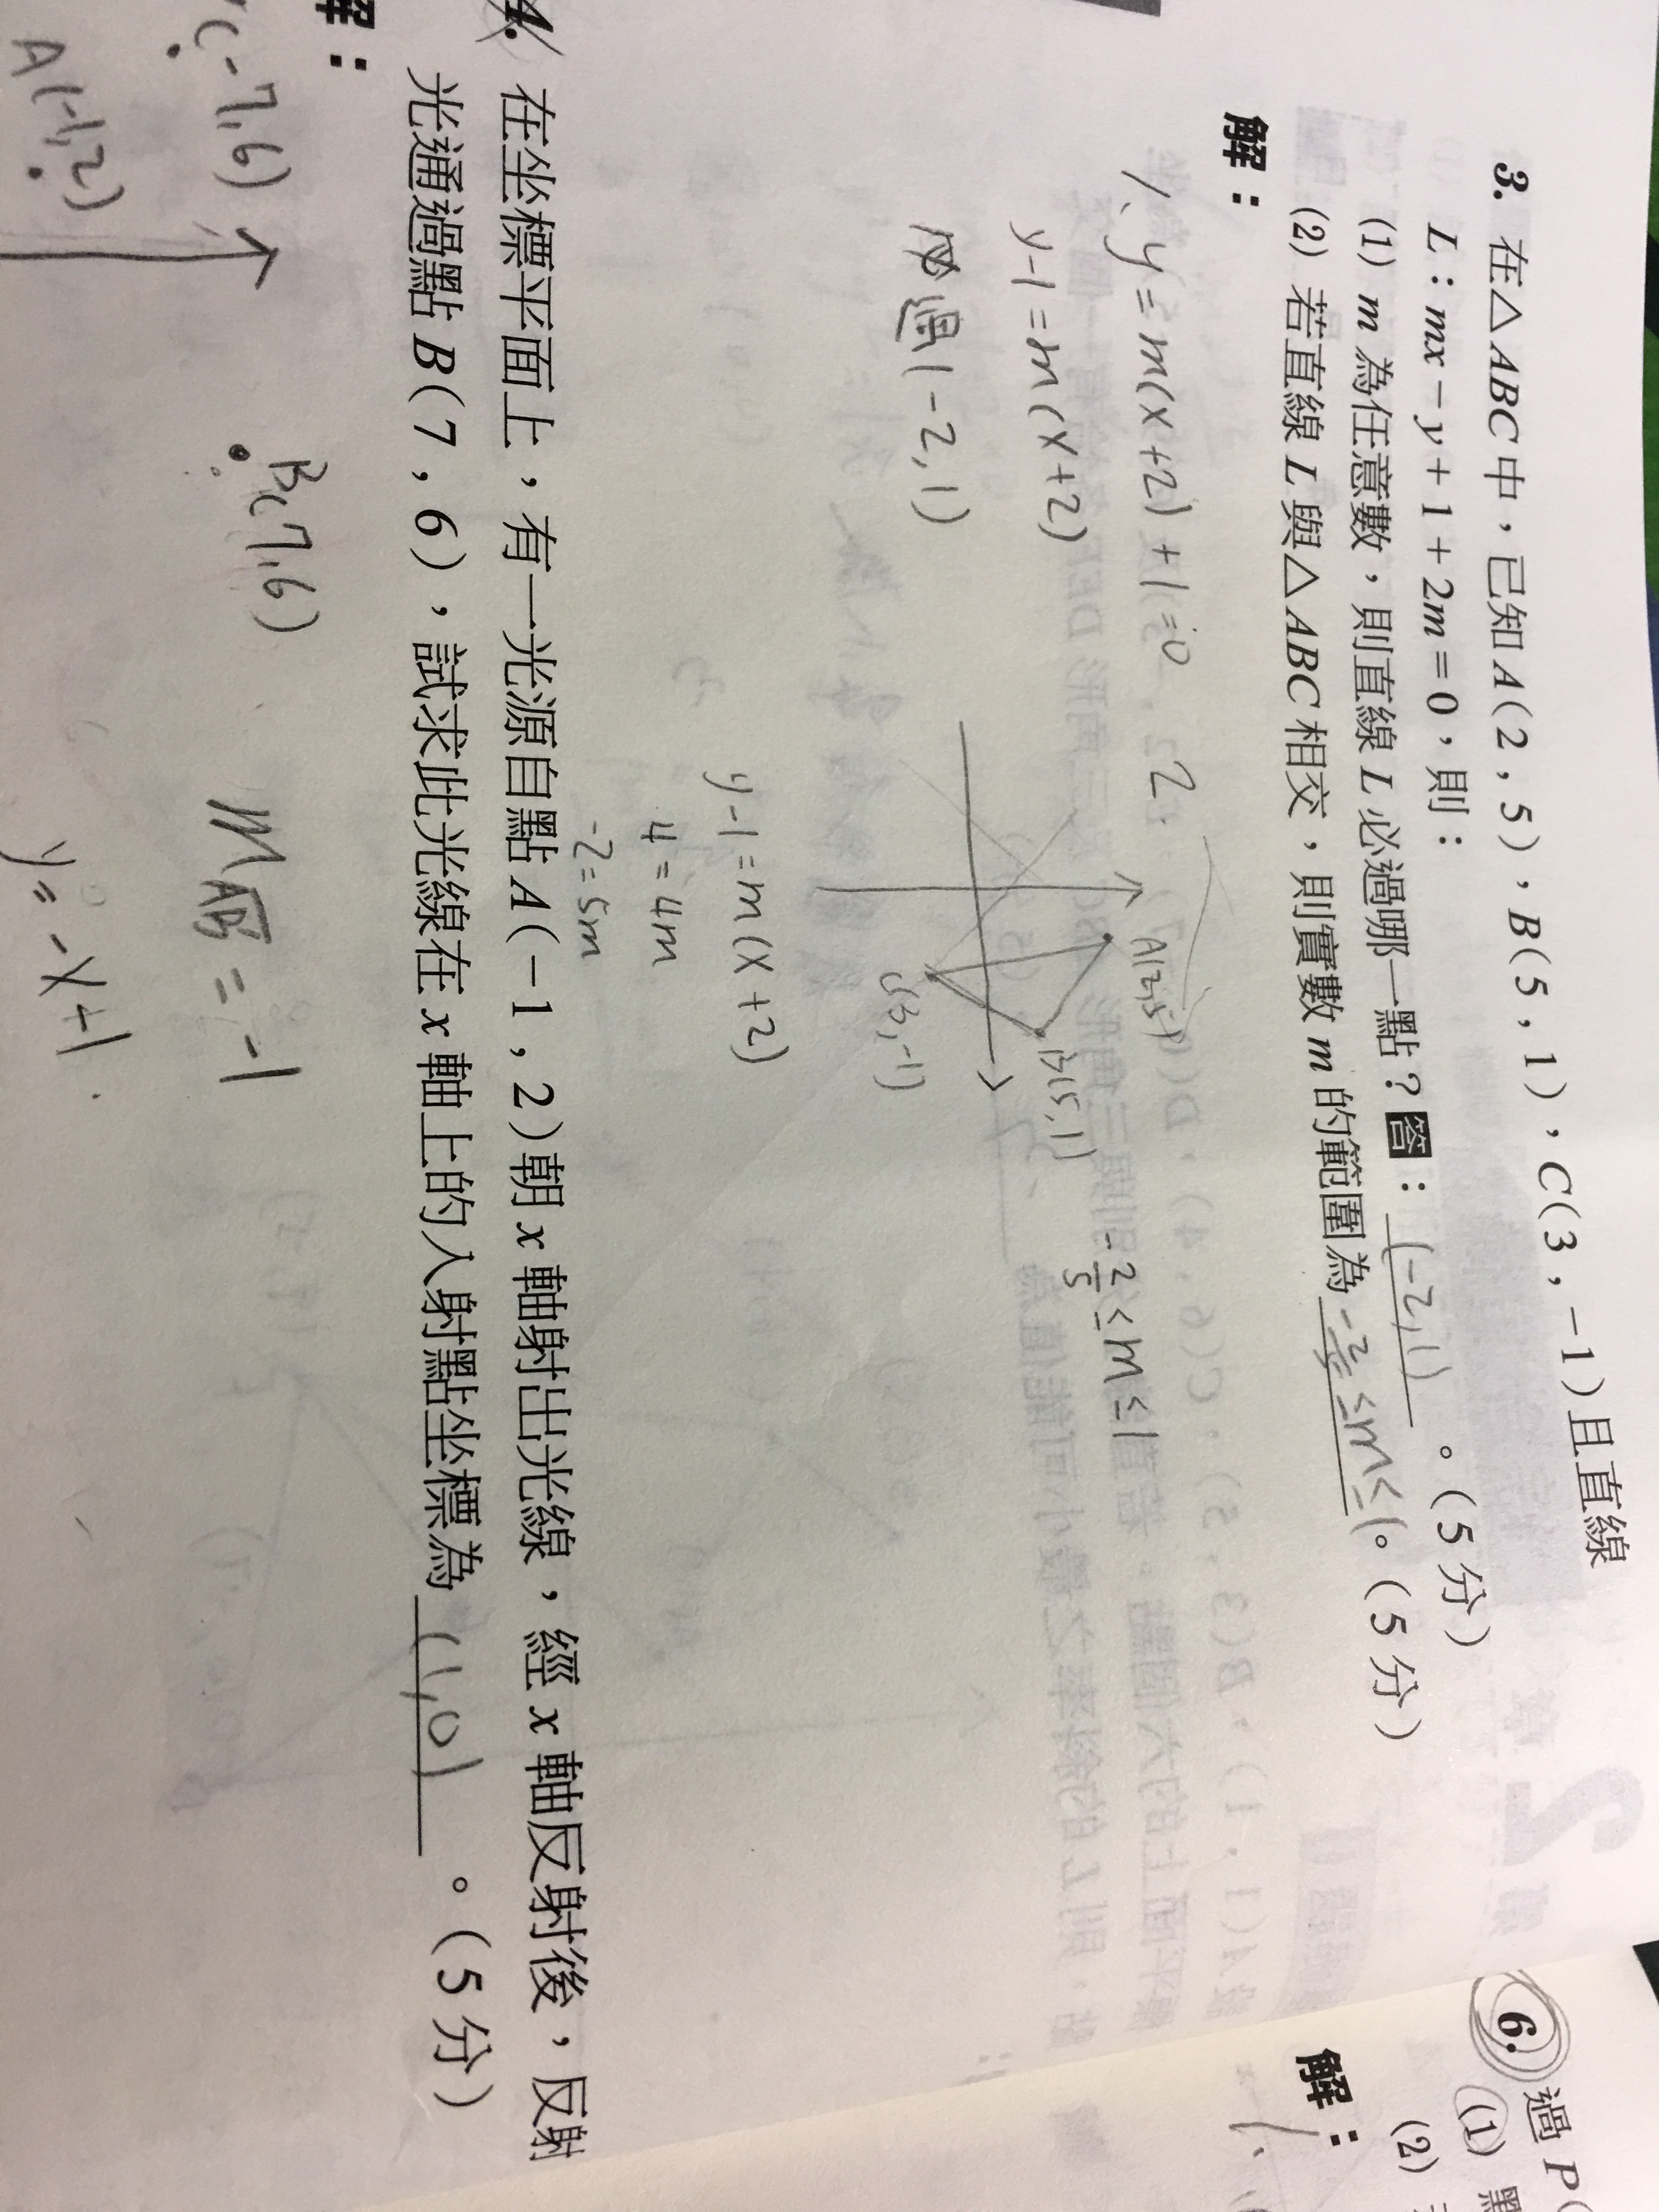 3. 在△ABC中，已知A(2，5)，B(5，1)，C(3，-1)且直線
L：mx-y+1+2m=0，則：
(1) m 為任意數，則直線 L 必過哪一點？答：(-2,1)。(5分)
(2) 若直線 L 與△ABC 相交，則實數 m 的範圍為 -2/5≤m≤1。(5分)
解：
1、y=m(x+2)+1=0
y-1=m(x+2)
必過(-2,1)
A(2,5)
B(5,1)
C(3,-1)
-2/5≤m≤1
y-1=m(x+2)
4=4m
-2=5m
4. 在坐標平面上，有一光源自點 A(-1，2)朝 x 軸射出光線，經 x 軸反射後，反射
光通過點 B(7，6)，試求此光線在 x 軸上的入射點坐標為 (1,0)。(5分)
解：
(-7,6)
B(7,6)
A(-1,2)
m AB = -1
y=-x+1
6. 過 P(
(1)
(2)
解：
1.